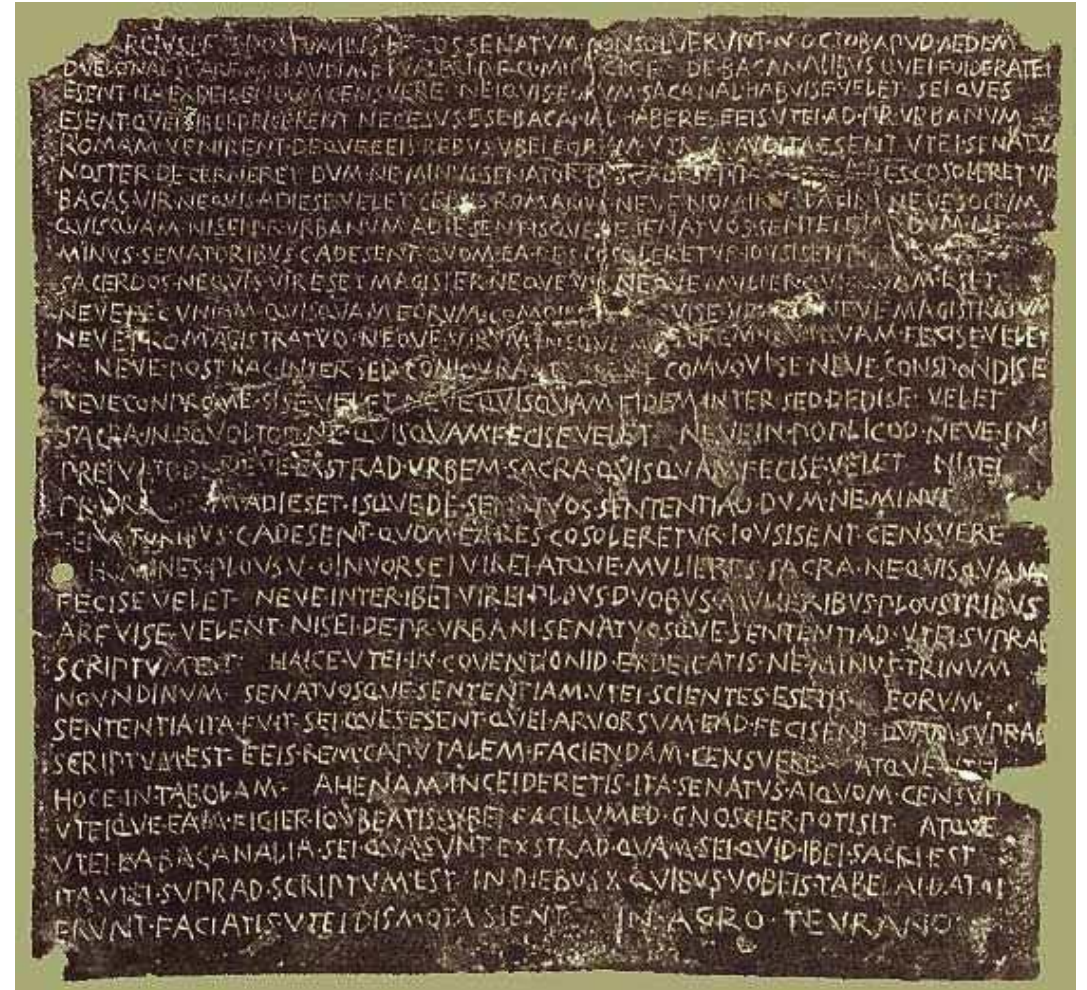 POSTVMIVS COS SENATVM CONSOLVERVNT N OCTOB APVD AEDEM
DVELONAI SC ARF M CLAVDI M F VALERI P F Q MINVCI C F DE BACANALIBVS QVEI FOIDERATEI
ESENT ITA EXDEICENDVM CENSVERE NEIQVIS EORVM SACANAL HABVISE VELET SEI QVES
ESENT QVEI SIBEI DEICERENT NECESVS ESE BACANAL HABERE EEIS VTEI AD PR VRBANVM
ROMAM VENIRENT DEQVE EEIS REBVS VBEI EORVM ESENT VTEI SENATVS
NOSTER DECERNERET DVM NE MINVS SENATORBVS C ADESENT RES COSOLERETVR
BACAS VIR NEQVIS ADIESE VELET CEIVIS ROMANVS NEVE NOMINVS LATINI NEVE SOCIVM
QVISQVAM NISEI PR VRBANVM ADIESENT ISQVE DE SENATVOS SENTENTIAD DVM NE
MINVS SENATORIBVS C ADESENT QVOM EA RES COSOLERETVR IOVSISENT
SACERDOS NEQVIS VIR ESET MAGISTER NEQVE VIR NEQVE MVLIER QVISQVAM ESET
NEVE PECVNIAM QVISQVAM EORVM COMOINEM NEVE MAGISTRATVM
NEVE PRO MAGISTRATVO NEQVE VIRVM NEQVE MVLIEREM QVISQVAM FECISE VELET
NEVE POST HAC INTER SED CONIOVRASE NEVE COMVOVISE NEVE CONSPONDISE
NEVE CONPROMESISE VELET NEVE QVISQVAM FIDEM INTER SED DEDISE VELET
SACRA IN DQVOLTOD NE QVISQVAM FECISE VELET NEVE IN POPLICOD NEVE IN
PREIVATOD NEVE EXSTRAD VRBEM SACRA QVISQVAM FECISE VELET NISEI
PR VRBANVM ADIESET ISQVE DE SENATVOS SENTENTIAD DVM NE MINVS
SENATORIBVS C ADESENT QVOM EA RES COSOLERETVR IOVSISENT CENSVERE
HOMINES PLOVS V OINVORSEI VIREI ATQVE MVLIERES SACRA NE QVISQVAM
FECISE VELET NEVE INTER IBEI VIREI PLOVS DVOBVS MVLIERIBVS PLOVS TRIBVS
ARFVISE VELENT NISEI DE PR VRBANI SENATVOSQVE SENTENTIAD VTEI SVPRAD
SCRIPTVM EST HAICE VTEI IN COVENTIONID EXDEICATIS NE MINVS TRINVM
NOVNDINVM SENATVOSQVE SENTENTIAM VTEI SCIENTES ESETIS EORVM
SENTENTIA ITA FVIT SEI QVES ESENT QVEI ARVORSVM EAD FECISENT QVAM SVPRAD
SCRIPTVM EST EEIS REM CAPVTALEM FACIENDAM CENSVERE ATQVE VTEI
HOCE IN TABOLAM AHENAM INCEIDERETIS ITA SENATVS AIQVOM CENSVIT
VTEIQVE EAM FIGIER IOVBEATIS VBEI FACILVMED GNOSCIER POTISIT ATQVE
VTEI EA BACANALIA SEI QVA SVNT EXSTRAD QVAM SEI QVID IBEI SACRI EST
ITA VTEI SVPRAD SCRIPTVM EST IN DIEBVS X QVIBVS VOBEIS TABELAI DATAI
ERVNT FACIATIS VTEI DISMOTA SIENT IN AGRO TEVRANO